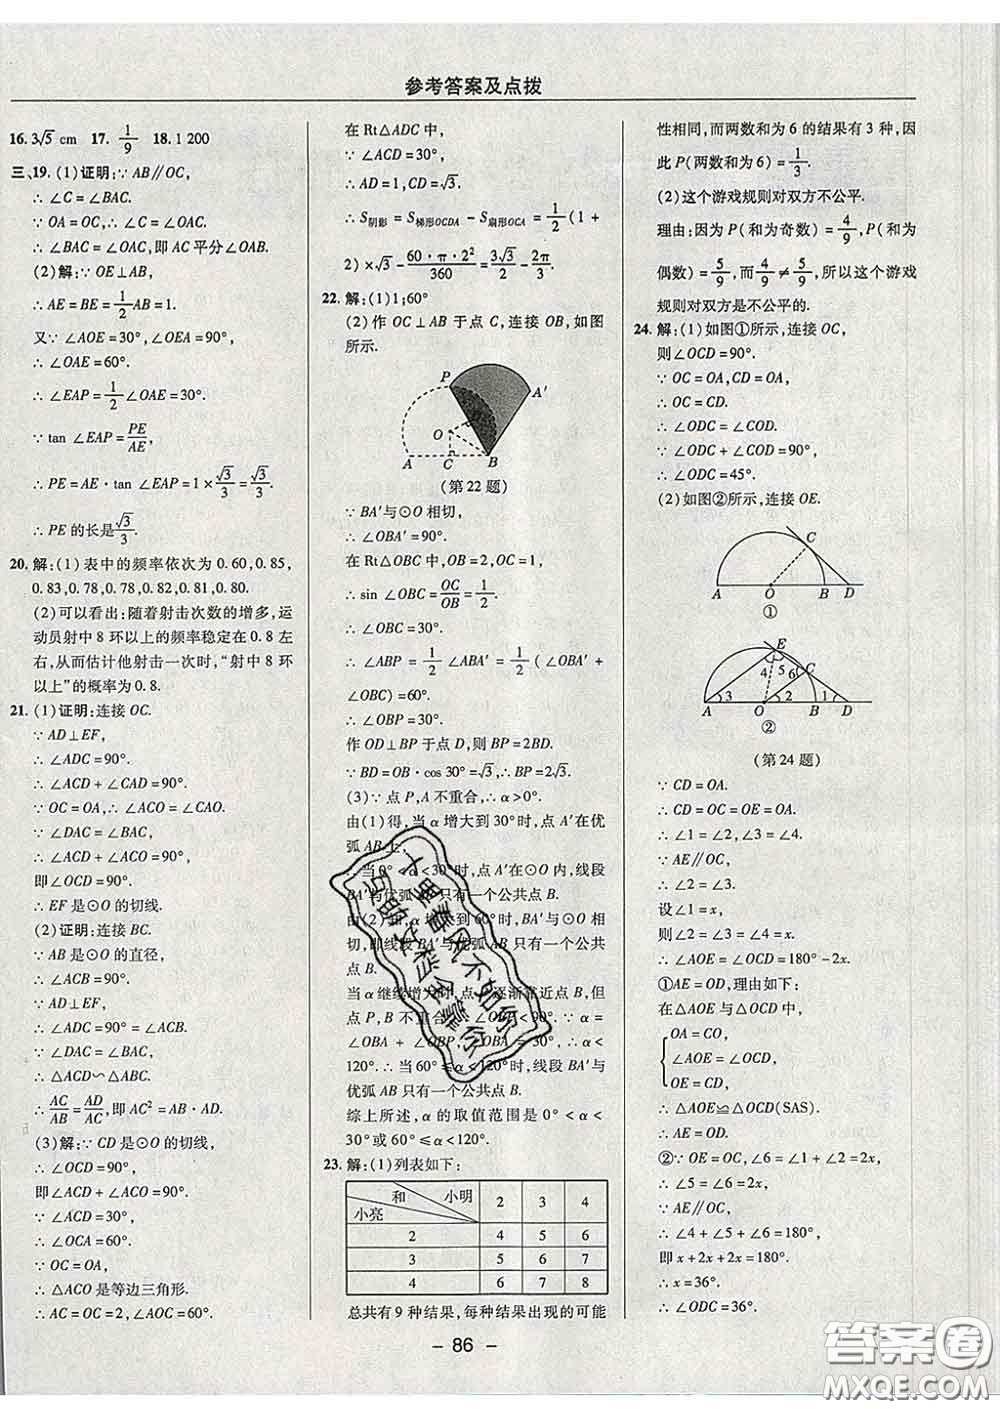 参考答案及点拨
16. 3√5 cm 17. 1/9 18. 1 200
三、19. (1)证明:∵AB∥OC,
∴∠C=∠BAC.
∵OA=OC,∴∠C=∠OAC.
∴∠BAC=∠OAC,即AC平分∠OAB.
(2)解:∵OE⊥AB,
∴AE=BE=1/2AB=1.
又∵∠AOE=30°,∠OEA=90°,
∴∠OAE=60°.
∴∠EAP=1/2∠OAE=30°.
∵tan ∠EAP=PE/AE,
∴PE=AE·tan ∠EAP=1×√3/3=√3/3.
∴PE的长是√3/3.
20. 解:(1)表中的频率依次为0.60,0.85,
0.83,0.78,0.78,0.82,0.81,0.80.
(2)可以看出:随着射击次数的增多,运
动员射中8环以上的频率稳定在0.8左
右,从而估计他射击一次时,“射中8环
以上”的概率为0.8.
21. (1)证明:连接OC.
∵AD⊥EF,
∴∠ADC=90°.
∴∠ACD+∠CAD=90°.
∵OC=OA,∴∠ACO=∠CAO.
∵∠DAC=∠BAC,
∴∠ACD+∠ACO=90°,
即∠OCD=90°.
∴EF是⊙O的切线.
(2)证明:连接BC.
∵AB是⊙O的直径,
∴∠ACB=90°.
∵AD⊥EF,
∴∠ADC=90°=∠ACB.
∵∠DAC=∠BAC,
∴△ACD∽△ABC.
∴AC/AB=AD/AC,即AC²=AB·AD.
(3)解:∵CD是⊙O的切线,
∴∠OCD=90°,
即∠ACD+∠ACO=90°.
∵∠ACD=30°,
∴∠OCA=60°.
∵OC=OA,
∴△ACO是等边三角形.
∴AC=OC=2,∠AOC=60°.
在Rt△ADC中,
∵∠ACD=30°,
∴AD=1,CD=√3.
∴S阴影=S梯形OCDA−S扇形OCA=1/2(1+
2)×√3−60·π·2²/360=3√3/2−2π/3.
22. 解:(1)1;60°
(2)作OC⊥AB于点C,连接OB,如图
所示.
P
A′
O
A C B
(第22题)
∵BA′与⊙O相切,
∴∠OBA′=90°.
在Rt△OBC中,OB=2,OC=1,
∴sin ∠OBC=OC/OB=1/2.
∴∠OBC=30°.
∴∠ABP=1/2∠ABA′=1/2(∠OBA′+
∠OBC)=60°.
∴∠OBP=30°.
作OD⊥BP于点D,则BP=2BD.
∵BD=OB·cos 30°=√3,∴BP=2√3.
(3)∵点P,A不重合,∴α>0°.
由(1)得,当α增大到30°时,点A′在优
弧AB上,
∴当0°<α<30°时,点A′在⊙O内,线段
BA′与优弧AB只有一个公共点B.
由(2)知,α增大到60°时,BA′与⊙O相
切,即线段BA′与优弧AB只有一个公共
点B.
当α继续增大时,点P逐渐靠近点B,但
点P,B不重合,∴∠OBP<90°.∵α=
∠OBA+∠OBP,∠OBA=30°,∴α<
120°.∴当60°≤α<120°时,线段BA′与
优弧AB只有一个公共点B.
综上所述,α的取值范围是0°<α<
30°或60°≤α<120°.
23. 解:(1)列表如下:
和 小明 2 3 4
小亮
2 4 5 6
3 5 6 7
4 6 7 8
总共有9种结果,每种结果出现的可能
性相同,而两数和为6的结果有3种,因
此P(两数和为6)=1/3.
(2)这个游戏规则对双方不公平.
理由:因为P(和为奇数)=4/9,P(和为
偶数)=5/9,而4/9≠5/9,所以这个游戏
规则对双方是不公平的.
24. 解:(1)如图①所示,连接OC,
则∠OCD=90°.
∵OC=OA,CD=OA,
∴OC=CD.
∴∠ODC=∠COD.
∵∠ODC+∠COD=90°,
∴∠ODC=45°.
(2)如图②所示,连接OE.
C
A O B D
①
E
4 5 6 C
3 2 1
A O B D
②
(第24题)
∵CD=OA.
∴CD=OC=OE=OA.
∴∠1=∠2,∠3=∠4.
∵AE∥OC,
∴∠2=∠3.
设∠1=x,
∴∠2=∠3=∠4=x.
∴∠AOE=∠OCD=180°−2x.
①AE=OD,理由如下:
在△AOE与△OCD中,
OA=CO,
∠AOE=∠OCD,
OE=CD,
∴△AOE≌△OCD(SAS).
∴AE=OD.
②∵OC=OE,∠6=∠1+∠2=2x,
∴∠5=∠6=2x.
∵AE∥OC,
∴∠4+∠5+∠6=180°,
即x+2x+2x=180°.
∴x=36°.
∴∠ODC=36°.
– 86 –
十里春风不如你
互助文档全靠你
答案圈
MXQE.COM